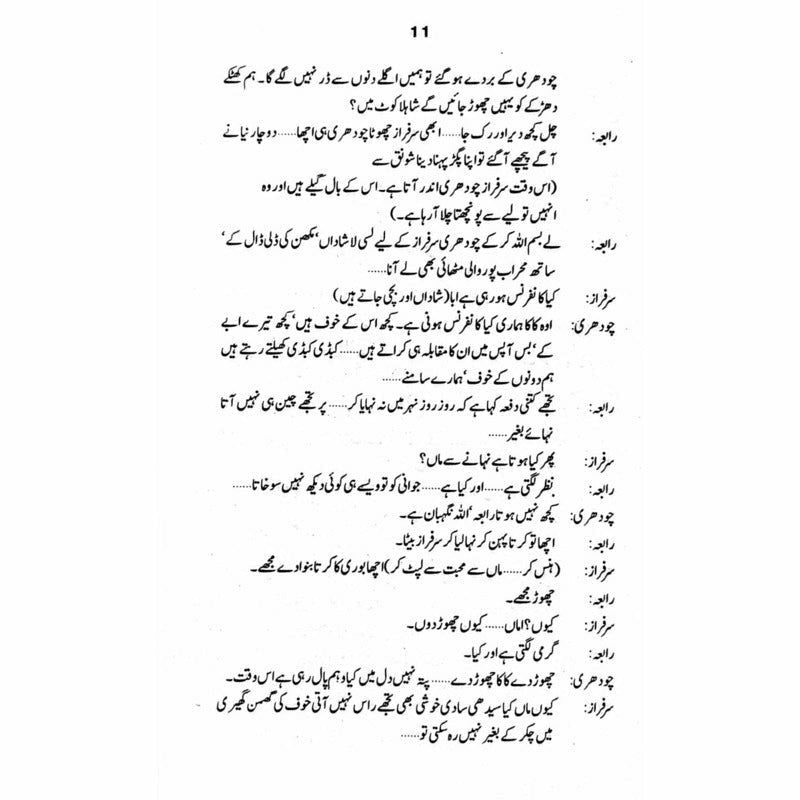 11
چودھری کے بردے ہو گئے تو ہمیں اگلے دنوں سے ڈر نہیں لگے گا۔ ہم کھٹکے
دھڑکے کو یہیں چھوڑ جائیں گے شاہلا کوٹ میں؟
رابعہ: چل کچھ دیر اور رک جا...... ابھی سرفراز چھوٹا چودھری ہی اچھا...... دو چار نیانے
آگے پیچھے آ گئے تو اپنا پگڑ پہنا دینا شونق سے
(اس وقت سرفراز چودھری اندر آتا ہے۔ اس کے بال گیلے ہیں اور وہ
انہیں تولیے سے پونچھتا چلا آ رہا ہے۔)
رابعہ: لے بسم اللہ کر کے چودھری سرفراز کے لیے لسی لا شاداں‘ مکھن کی ڈلی ڈال کے‘
ساتھ محراب پور والی مٹھائی بھی لے آنا......
سرفراز: کیا کانفرنس ہو رہی ہے ابا (شاداں اور بچی جاتے ہیں)
چودھری: اوہ کاکا ہماری کیا کانفرنس ہونی ہے۔ کچھ اس کے خوف ہیں‘ کچھ تیرے ابے
کے‘ بس آپس میں ان کا مقابلہ ہی کراتے ہیں...... کبڈی کبڈی کھیلتے رہتے ہیں
ہم دونوں کے خوف‘ ہمارے سامنے......
رابعہ: تجھے کتنی دفعہ کہا ہے کہ روز روز نہر میں نہ نہایا کر...... پر تجھے چین ہی نہیں آتا
نہائے بغیر......
سرفراز: پھر کیا ہوتا ہے نہانے سے ماں؟
رابعہ: نظر لگتی ہے...... اور کیا ہے...... جوانی کو تو ویسے ہی کوئی دیکھ نہیں سوخاتا......
چودھری: کچھ نہیں ہوتا رابعہ‘ اللہ نگہبان ہے۔
رابعہ: اچھا تو کرتا پہن کر نہا لیا کر سرفراز بیٹا۔
سرفراز: (ہنس کر...... ماں سے محبت سے لپٹ کر) اچھا بوری کا کرتا بنوا دے مجھے۔
رابعہ: چھوڑ مجھے۔
سرفراز: کیوں؟ اماں...... کیوں چھوڑ دوں۔
رابعہ: گرمی لگتی ہے اور کیا۔
چودھری: چھوڑ دے کاکا چھوڑ دے...... پتہ نہیں دل میں کیا وہم پال رہی ہے اس وقت۔
سرفراز: کیوں ماں کیا سیدھی سادی خوشی بھی تجھے راس نہیں آتی خوف کی گھمن گھیری
میں چکر کے بغیر نہیں رہ سکتی تو......